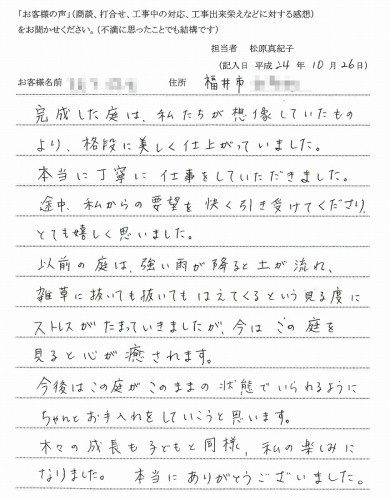 「お客様の声」（商談、打合せ、工事中の対応、工事出来栄えなどに対する感想）
をお聞かせください。（不満に思ったことでも結構です）
担当者 松原真紀子
（記入日 平成24年10月26日）
お客様名前 住所 福井市
完成した庭は、私たちが想像していたもの
より、格段に美しく仕上がっていました。
本当に丁寧に仕事をしていただきました。
途中、私からの要望を快く引き受けてくださり、
とても嬉しく思いました。
以前の庭は、強い雨が降ると土が流れ、
雑草に抜いても抜いてもはえてくるという見る度に
ストレスがたまっていきましたが、今はこの庭を
見ると心が癒されます。
今後はこの庭がこのままの状態でいられるように
ちゃんとお手入れをしていこうと思います。
木々の成長も子どもと同様、私の楽しみに
なりました。 本当にありがとうございました。